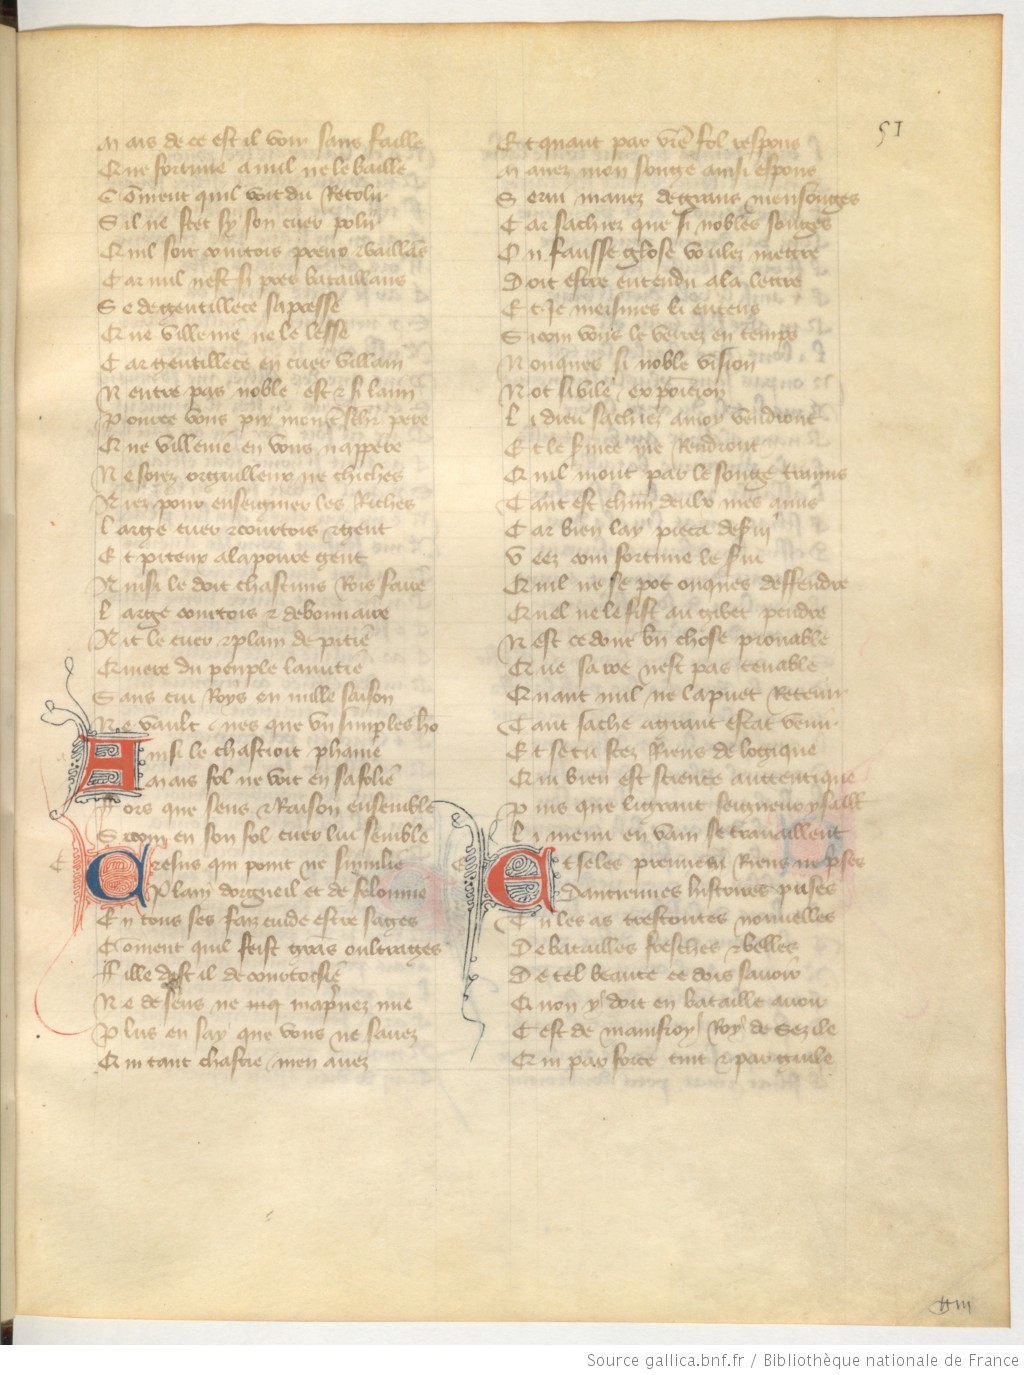 51
Mais de ce est il voir sans faille
Que fortune a nul ne le baille
Coment quil voit du Retolir
S il ne scet sy son cuer polir
Quil soit courtois preux & vaillās
Car nul nest si pres bataillans
Se de gentillece sapresse
Que villenie ne le lesse
Car gentillece en cuer villain
N entre pas noble est & si laim
Pource vous
Que villenie en vous nappere
Ne soiez orguilleux ne chiches
Aiez pour enseignier les Riches
Large cuer & courtois & gent
Et piteux a la poure gent
Ainsi le doit chascuns Rois faire
Large courtois & debonnaire
Ait le cuer & plain de pitie
Quiere du peuple lamitie
Sans cui Roys en nulle saison
Ne vault nes que vn simples ho
Ainsi le chastioit phanie
Mais fol ne voit en sa folie
Fors que sens & Raison ensemble
Sicom en son fol cuer lui semble
Cresus qui point ne sumilie
Plain dorgueil et de felonnie
En tous ses faiz cuide estre sages
Coment quil feist grās oultrages
Fille dest il de courtoisie
Ne de sens ne maprnez mie
Plus en say que vous ne sauez
Qui tant chastie men auez
Et quant par vrē fol respons
Mauez mon songe ainsi espons
Serui mauez de grans mensonges
Car sachiez que si nobles songes
On fausse glose voulez mettre
Doit estre entendu a la lettre
Et Je meismes li entens
Sicom vous le verrez en temps
N onques si noble vision
Not si vile exposicion
Li dieu sachiez a moy vendront
Et le me Rendront
Quil mont par le songe tramis
Tant est chun deulx mes amis
Car bien lay pieca desui
Veez com fortune le sui
Quil ne se pot onques deffendre
Quel ne le fist au gibet pendre
Nest ce dont bn chose prouable
Que sa roe nest pas tenable
Quant nul ne la puet Retenir
Tant sache a grant estat venir
Et se tu scez Riens de logique
Qui bien est science auttentique
Puis que li grant seigneur y faillt
Li menu en vain se trauaillent
Et se les preuues Riens ne pses
Danciennes histoires prises
Tu les as trestoutes nouuelles
De batailles fresches & belles
De tel beaute ce dois sauoir
Quon y doit en bataille auoir
Cest de mainfroy Roy de Sezile
Qui par force tint & par guile